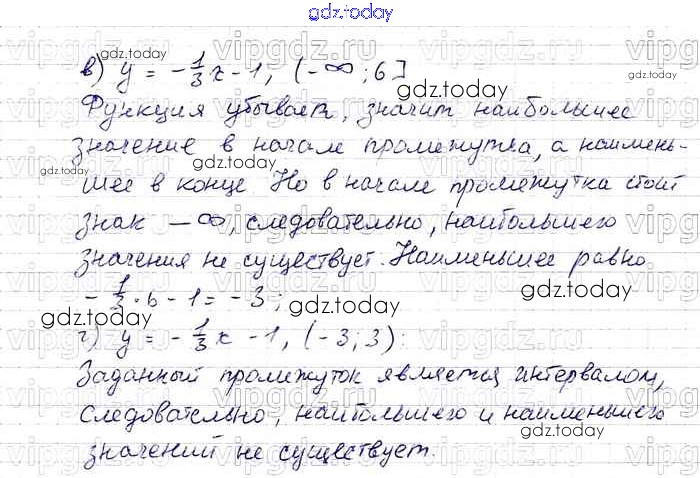 gdz.today
в) y = -1/3 x - 1, (-∞; 6]
Функция убывает, значит наибольшее
значение в начале промежутка, а наимень-
шее в конце. Но в начале промежутка стоит
знак -∞, следовательно, наибольшего
значения не существует. Наименьшее равно
-1/3 · 6 - 1 = -3;
г) y = -1/3 x - 1, (-3; 3):
Заданный промежуток является интервалом,
следовательно, наибольшего и наименьшего
значений не существует.